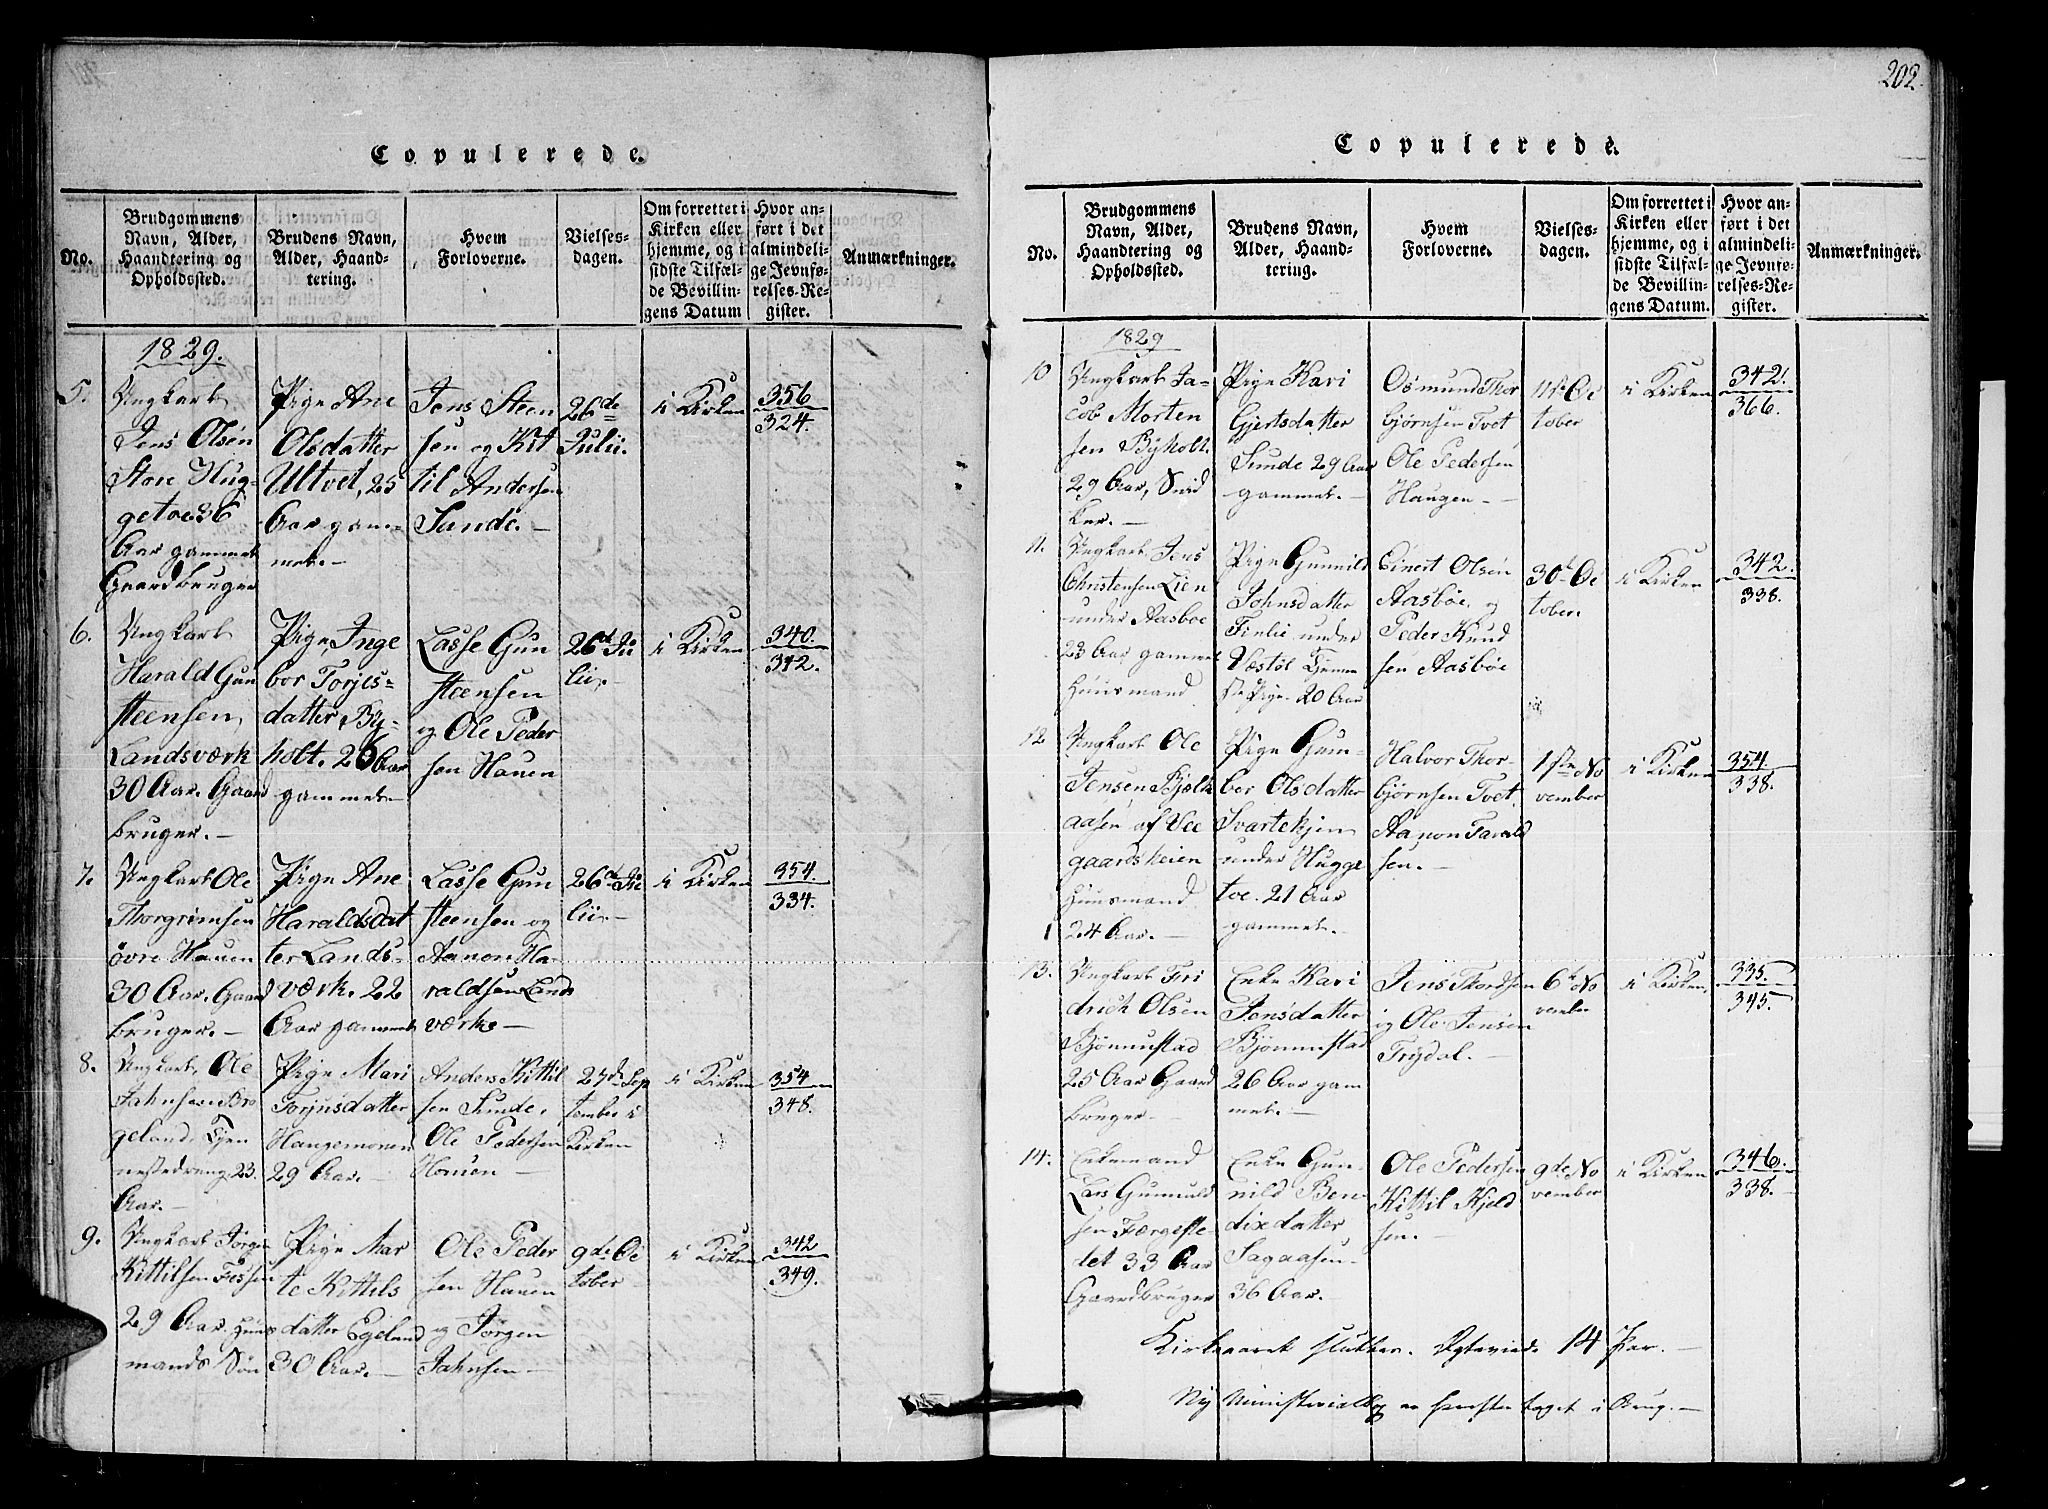 Copulerede.
No.
Brudgommens
Navn, Alder,
Haandtering og
Opholdssted.
Brudens Navn,
Alder, Haand-
tering.
Hvem
Forloverne.
Vielses-
dagen.
Om forrettet i
Kirken eller
hjemme, og i
sidste Tilfæl-
de Bevillin-
gens Datum
Hvor an-
ført i det
almindeli-
ge Jevnfø-
relses-Re-
gister.
Anmærkninger.
1829.
5.
Ungkarl
Jens Olsen
Store Hug-
getoe 36
Aar gammel
Gaardbruger
Pige Ane
Olsdatter
Ultvet, 25
Aar gam-
mel.-
Jens Steen
sen og Kit
til Andersen
Sunde.-
26de
Julii.
i Kirken
356
324.
6.
Ungkarl
Harald Gun
steensen,
Landsværk
30 Aar. Gaard
bruger.-
Pige Inge
bor Torjes-
datter, By-
holt. 26 Aar
gammel
Lasse Gun
steensen
og Ole Peder
sen Hauen
26de Ju
lii.-
i Kirken
340.
342.
7.
Ungkarl Ole
Thorgrimsen
øvre Hauen
30 Aar. Gaard
bruger.-
Pige Ane
Haraldsdat
ter Lands-
værk. 22
Aar gammel
Lasse Gun
steensen og
Aanon Ha-
raldsen Lands
værk-
26de Ju
lii.-
i Kirken
354.
334.
8.
Ungkarl, Ole
Jahnsen
geland. Tjen
nestedreng. 23.
Aar.-
Pige Mari
Torjusdatter
Haugemonen
29 Aar.-
Anders Kittil
sen Sunde.
Ole Pedersen
Hauen-
Sep
tember i
Kirken
i Kirken
354
348.
9.
Ungkarl Jørgen
Kittilsen Fossen
29 Aar. Huus
mands Søn
Pige Mar
te Kittils
datter Egeland
30 Aar.-
Ole Peder
sen Hauen
og Jørgen
Jahnsen-
9de Oc
tober
i Kirken
342
349.
202.
Copulerede.
No.
Brudgommens
Navn, Alder,
Haandtering og
Opholdssted.
Brudens Navn,
Alder, Haand-
tering.
Hvem
Forloverne.
Vielses-
dagen.
Om forrettet i
Kirken eller
hjemme, og i
sidste Tilfæl-
de Bevillin-
gens Datum.
Hvor an-
ført i det
almindeli-
ge Jevnfø-
relses-Re-
gister.
Anmærkninger.
1829
10
Ungkarl Ja-
cob Morten
sen Byholt.
29 Aar, Snid
ker.-
Pige Kari
Gjertsdatter
Sunde 29 Aar
gammel.-
Osmund Thor
bjørnsen Tvet
Ole Pedersen
Haugen-
11te Oc
tober
i Kirken
342.
366.
11.
Ungkarl, Jens
Christensen Lien
under Aasboe
23 Aar gammel
Huusmand
Pige Gunnild
Johnsdatter
Finlie under
Væstøl
Pige. 20 Aar
Einert Olsen
Aasbøe, og
Peder Knud
sen Aasbøe
30te Oc
tober.
i Kirken
342.
338.
12
Ungkarl Ole
Jensen Bjelk
aasen af Vee
gaardsheien
Huusmand
24 Aar.-
Pige Gun-
bor Olsdatter
Svartekjen
under Hugge
toe. 21 Aar
gammel.
Halvor Thor-
bjørnsen Tvet.
Aanon Tarald
sen.-
1ste No
vember
i Kirken
354.
338.
13.
Ungkarl Fri
drich Olsen
Bjønnustad
25 Aar Gaard
bruger-
Enke Kari
Jensdatter
Bjønnustad
26 Aar gam
mel.-
Jens Thordsen
og Ole Jensen
Trydal.-
6te No
vember
i Kirken,
335.
345.
14.
Enkemand
Lars Gunnuld
sen Færgeste
det 33 Aar
Gaardbruger
Enke Gun-
nild Ben-
dixdatter
Sagaasen-
36 Aar.-
Ole Pedersen
Kittil Kjeld
sen.-
9de No
vember
i Kirken
346.
338.
Kirkeaaret slutter. Ægteviede 14 Par.-
Ny Ministerialbog er herefter taget i Brug.-